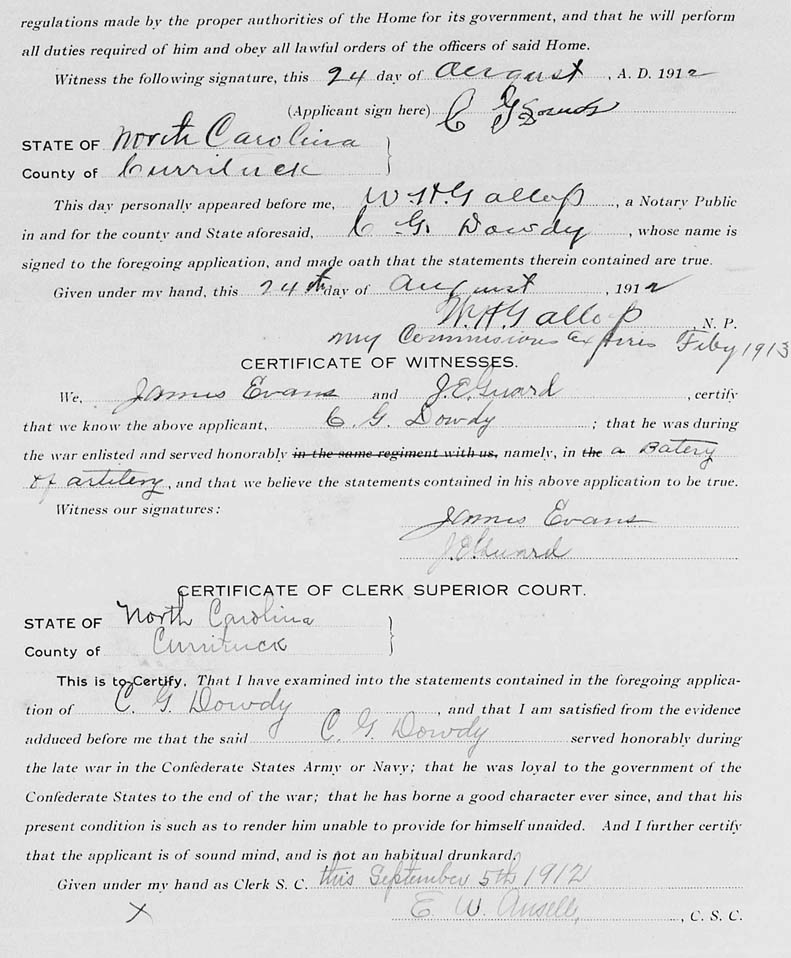 regulations made by the proper authorities of the Home for its government, and that he will perform
all duties required of him and obey all lawful orders of the officers of said Home.
Witness the following signature, this 24 day of August, A. D. 1912
(Applicant sign here) C G Dowdy
STATE OF North Carolina
County of Currituck
This day personally appeared before me, W. H. Gallop, a Notary Public
in and for the county and State aforesaid, C. G. Dowdy, whose name is
signed to the foregoing application, and made oath that the statements therein contained are true.
Given under my hand, this 24th day of August, 1912
W. H. Gallop, N. P.
my Commission Expires Feby 1913
CERTIFICATE OF WITNESSES.
We, James Evans and J. E. Guard, certify
that we know the above applicant, C. G. Dowdy; that he was during
the war enlisted and served honorably in the same regiment with us, namely, in the a Batery
of artilery, and that we believe the statements contained in his above application to be true.
Witness our signatures:
James Evans
J. E. Guard
CERTIFICATE OF CLERK SUPERIOR COURT.
STATE OF North Carolina
County of Currituck
This is to Certify, That I have examined into the statements contained in the foregoing applica-
tion of C. G. Dowdy, and that I am satisfied from the evidence
adduced before me that the said C. G. Dowdy served honorably during
the late war in the Confederate States Army or Navy; that he was loyal to the government of the
Confederate States to the end of the war; that he has borne a good character ever since, and that his
present condition is such as to render him unable to provide for himself unaided. And I further certify
that the applicant is of sound mind, and is not an habitual drunkard.
Given under my hand as Clerk S. C. this September 5th 1912
X E. W. Ansell, C. S. C.